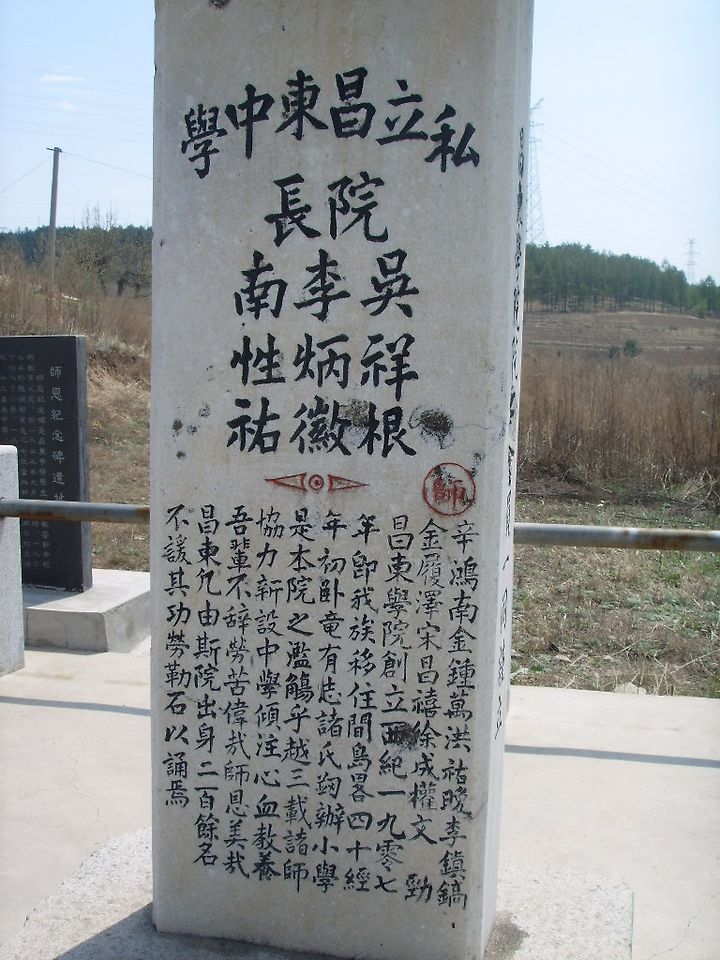 私立昌東中學
院長
吳祥根
李炳徽
南性祐
師
辛鴻南金鍾萬洪祐晚李鎭鎬
金履澤宋昌禧徐成權文 勁
昌東學院創立西紀一九零七
年卽我族移住間島畧四十經
年初卧竜有志諸氏剏辦小學
是本院之濫觴乎越三載諸師
協力新設中學傾注心血敎養
吾輩不辞勞苦偉哉師恩美哉
昌東凢由斯院出身二百餘名
不諼其功勞勒石以誦焉
師恩紀念碑遺址